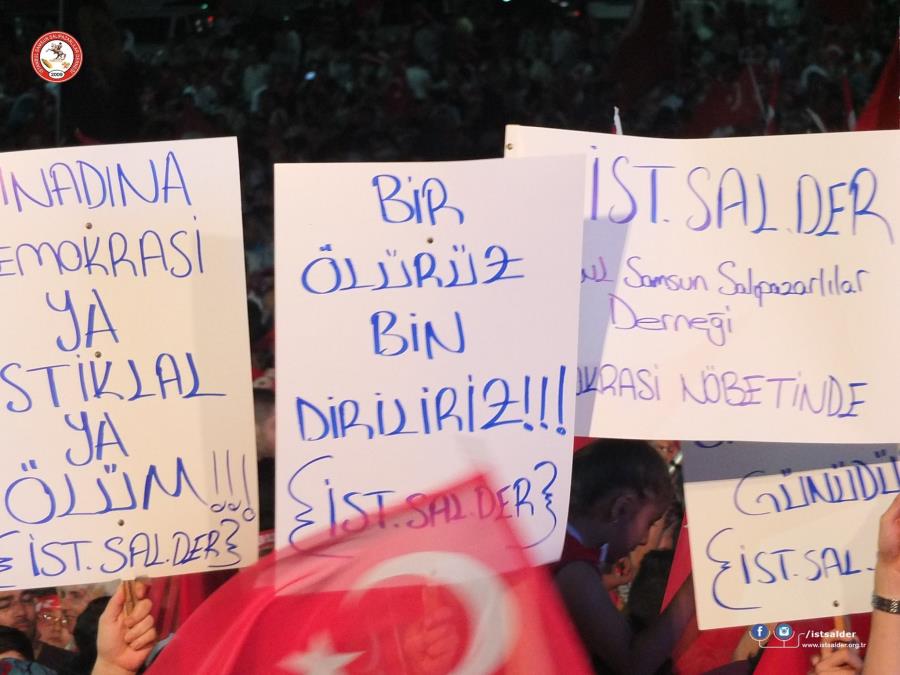 İNADINA
DEMOKRASİ
YA
İSTİKLAL
YA
ÖLÜM!!!
{İST.SAL.DER}
BİR
ÖLÜRÜZ
BİN
DİRİLİRİZ!!!
{İST.SAL.DER}
İST.SAL.DER
Samsun Salıpazarlılar
Derneği
KRASİ NÖBETİNDE
GÜNÜDÜ
{İST.SAL.
2009
/istsalder
www.istsalder.org.tr